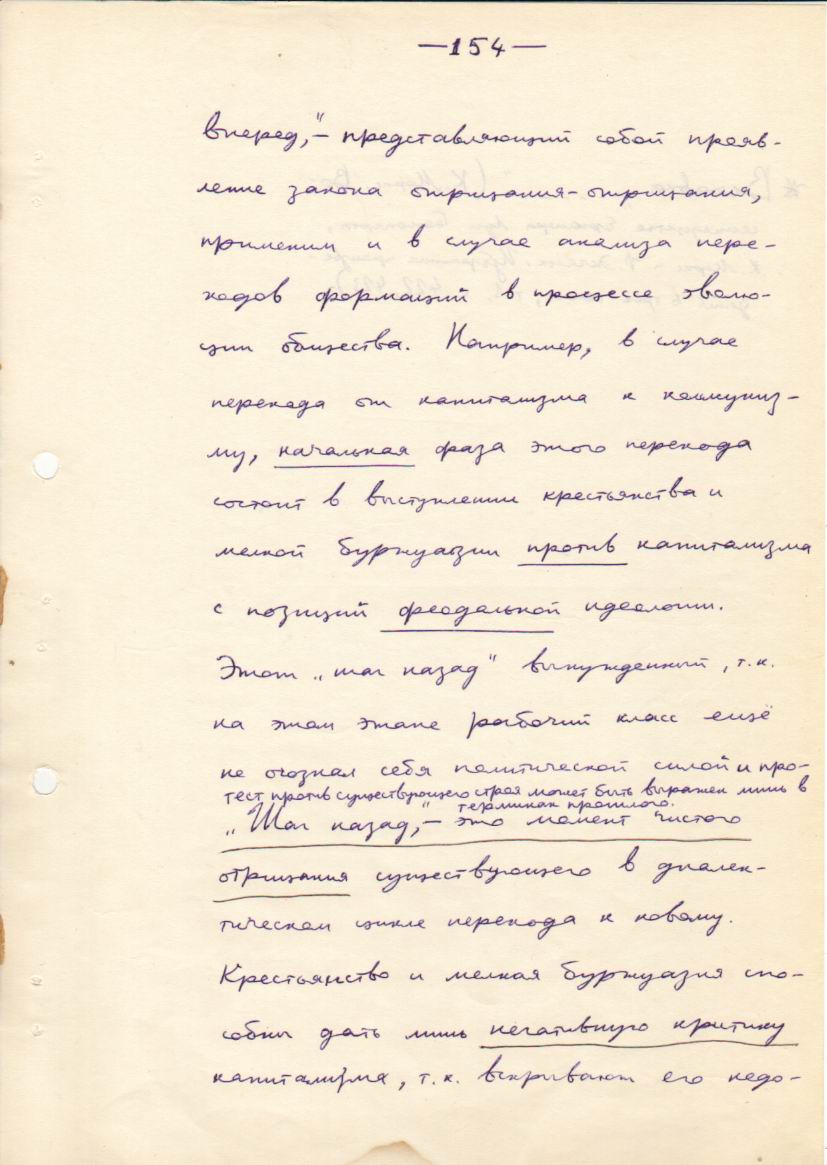 —154—
вперед,"— представляющий собой прояв-
ление закона отрицания-отрицания,
применим и в случае анализа пере-
ходов формаций в процессе эволю-
ции общества. Например, в случае
перехода от капитализма к коммуниз-
му, начальная фаза этого перехода
состоит в выступлении крестьянства и
мелкой буржуазии против капитализма
с позиций феодальной идеологии.
Этот „шаг назад" вынужденный, т.к.
на этом этапе рабочий класс ещё
не осознал себя политической силой и про-
тест против существующего строя может быть выражен лишь в
терминах прошлого.
„Шаг назад,"— это момент чистого
отрицания существующего в диалек-
тическом цикле перехода к новому.
Крестьянство и мелкая буржуазия спо-
собны дать лишь негативную критику
капитализма, т.к. вскрывают его недо-